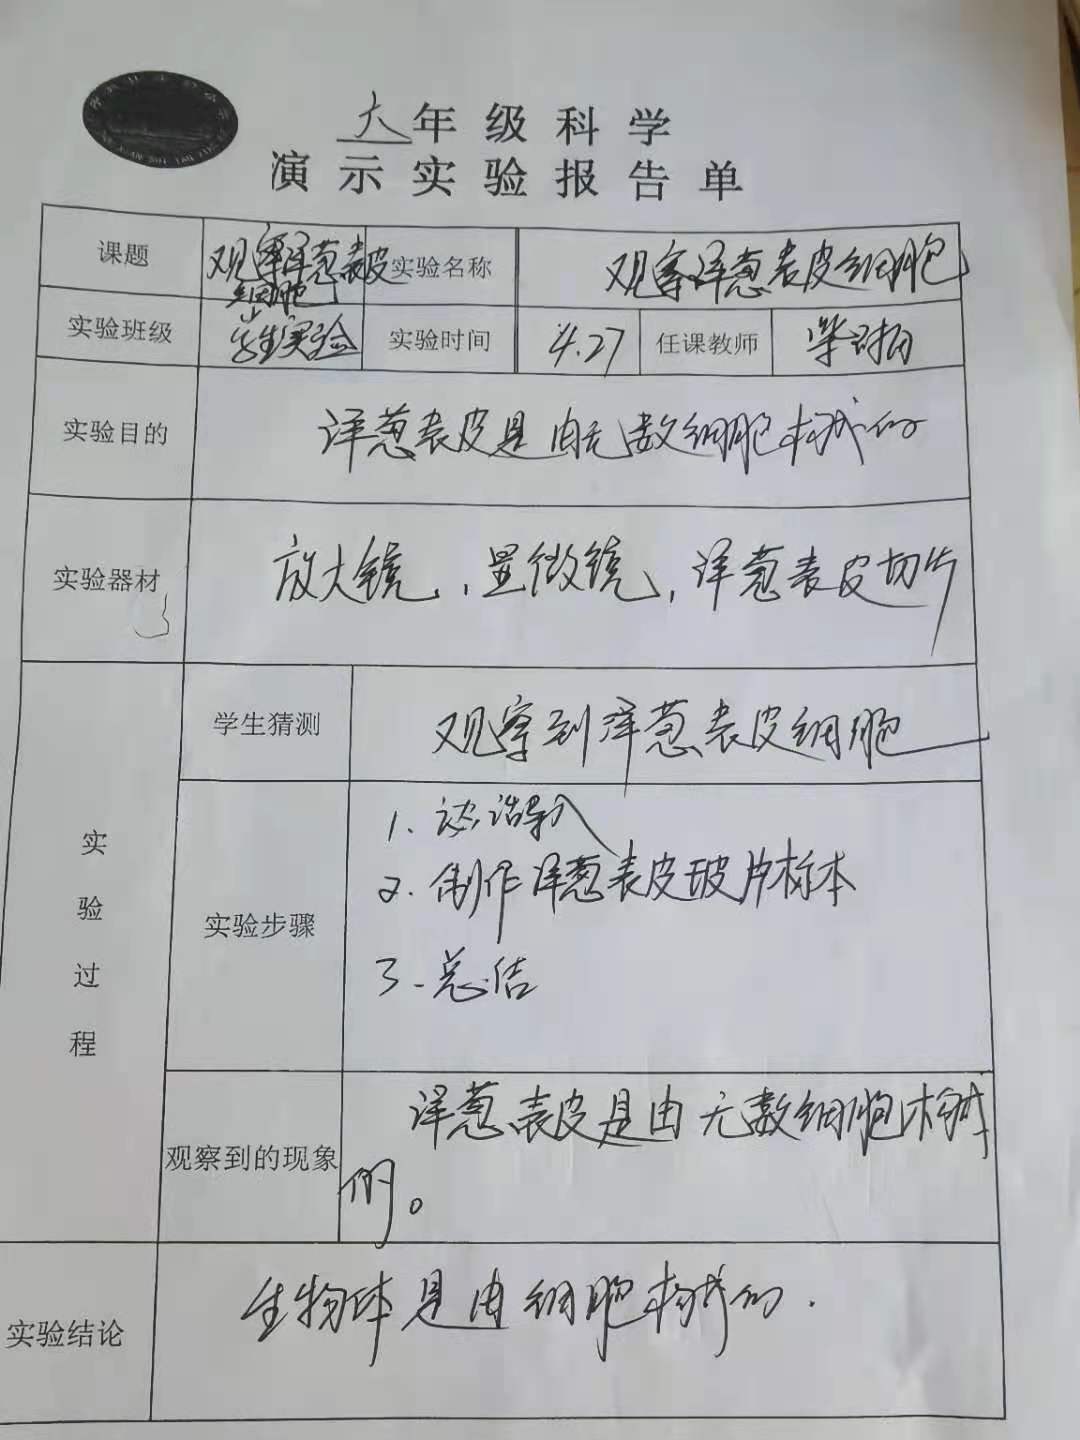 六年级科学
演示实验报告单
课题 观察洋葱表皮细胞 实验名称 观察洋葱表皮细胞
实验班级 学生实验 实验时间 4.27 任课教师
实验目的 洋葱表皮是由无数细胞构成的
实验器材 放大镜,显微镜,洋葱表皮切片
实验过程
学生猜测 观察到洋葱表皮细胞
实验步骤
1. 导入
2. 制作洋葱表皮玻片标本
3. 总结
观察到的现象 洋葱表皮是由无数细胞构成
的。
实验结论 生物体是由细胞构成的.